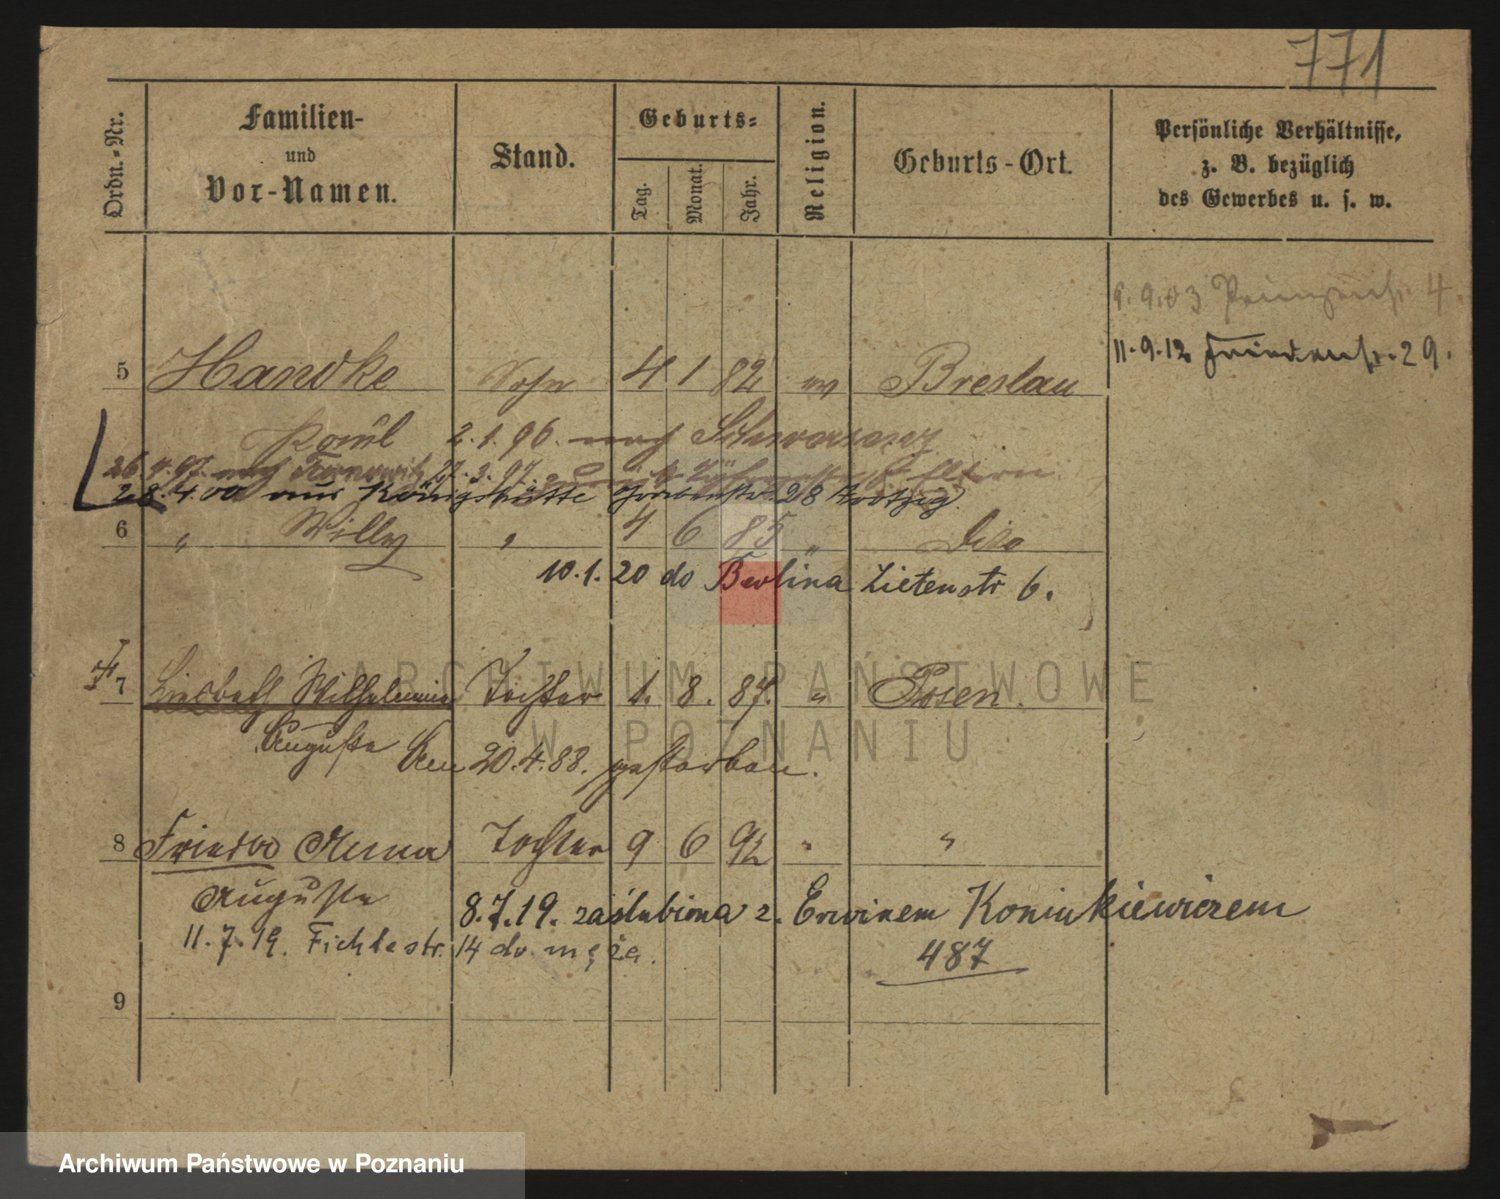 771
Ordn.-Nr.
Familien- und Vor-Namen.
Stand.
Geburts-
Tag.
Monat.
Jahr.
Religion.
Geburts-Ort.
Persönliche Verhältnisse, z. B. bezüglich des Gewerbes u. s. w.
9.9.03 4
11.9.12 Friedenstr. 29.
5 Handke Sohn 4 1 82 ev Breslau
Paul 2.1.96. nach Schwarzenz
26.4.97. nach Tarnowitz 27.3.97.
28.4.00 aus Königshütte 28
6 " Willy " 4 6 85 " Dito
10.1.20 do Berlina Zietenstr 6.
7 Liesbeth Wilhelmine Tochter 1. 8. 87. " Posen.
Auguste Am 20.4.88. gestorben.
8 Frieda Anna Tochter 9 6 92 " "
Auguste
8.7.19. zaślubiona z. Erwinem Koniukiewiczem
11.7.19. Fichtestr. 14 do męża.
487
9
ARCHIWUM PAŃSTWOWE
W POZNANIU
Archiwum Państwowe w Poznaniu